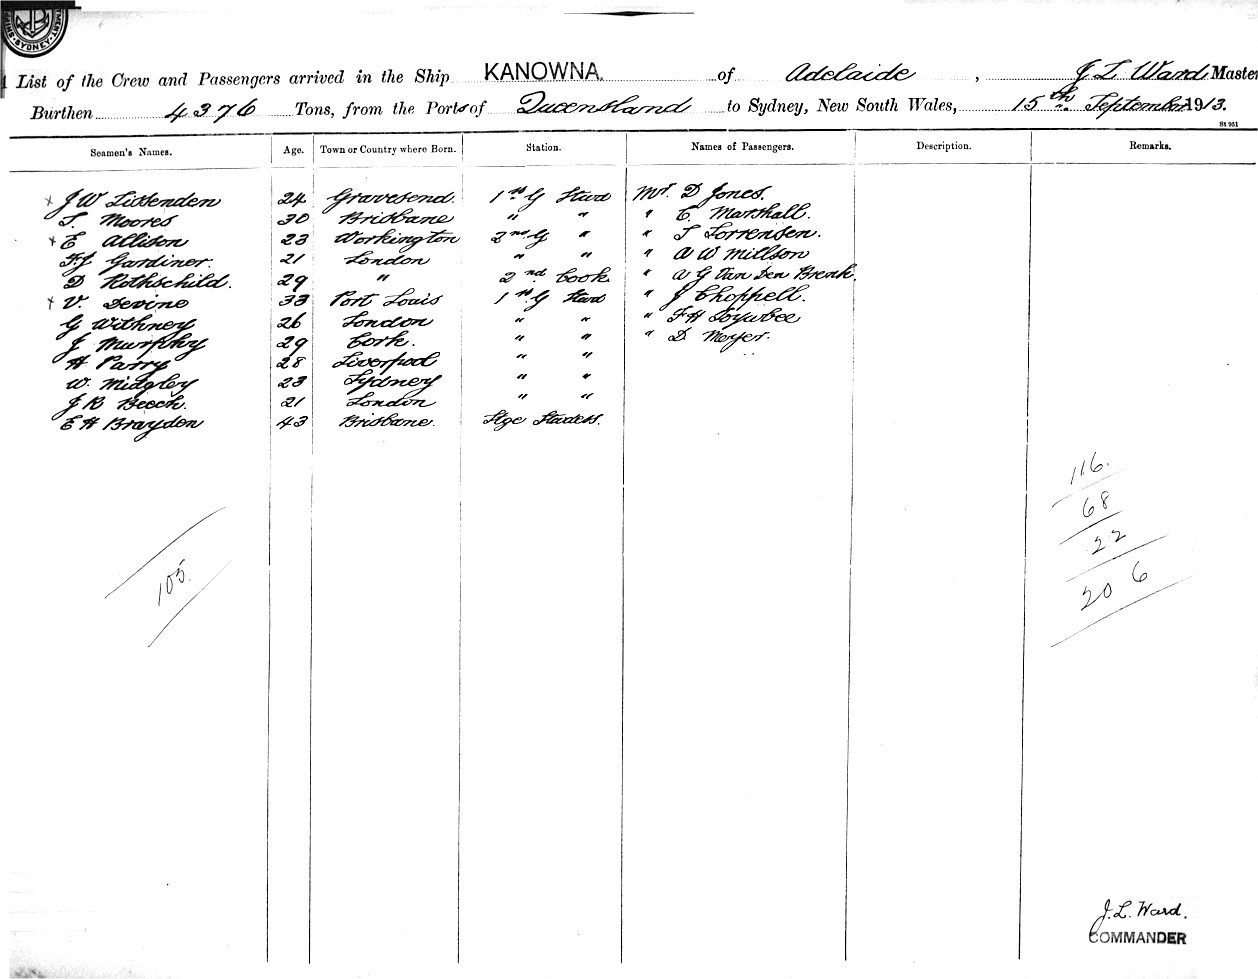 SHIPPING SYDNEY
List of the Crew and Passengers arrived in the Ship KANOWNA. of Adelaide, J L Ward Master
Burthen 4376 Tons, from the Ports of Queensland to Sydney, New South Wales, 15th September 1913.
St 961
Seamen's Names. Age. Town or Country where Born. Station. Names of Passengers. Description. Remarks.
x J W Lissenden 24 Gravesend. 1st G Stwd Mr. D Jones.
T. Moores 30 Brisbane " " " C. Marshall.
x E Allison 23 Workington 2nd G " " T Lorrensen.
F.J Gardiner. 21 London " " " A W Millson
D Rothschild. 29 " 2nd Cook. " A G Van Den Brenk
x V. Devine 33 Port Louis 1st G Stwd " J Choppell.
G Withney 26 London " " " F H Toywbee
J Murphy 29 Cork. " " " D. Meyer.
H Parry 28 Liverpool " "
W. Midgley 23 Sydney " "
J B Beech. 21 London " "
E H Brayden 43 Brisbane. Stge Stwdess.
116.
68
22
206
105.
J. L. Ward.
COMMANDER